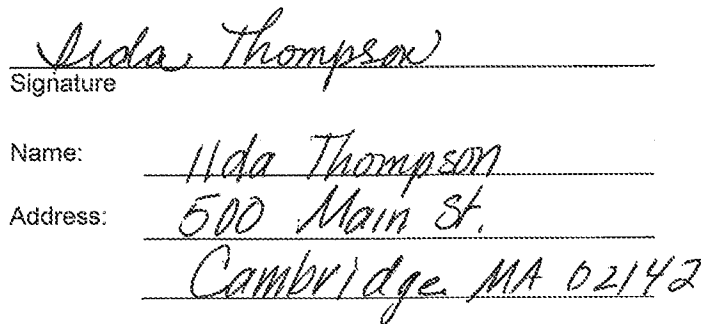 Ilda Thompson
Signature
Name: Ilda Thompson
Address: 500 Main St.
Cambridge MA 02142